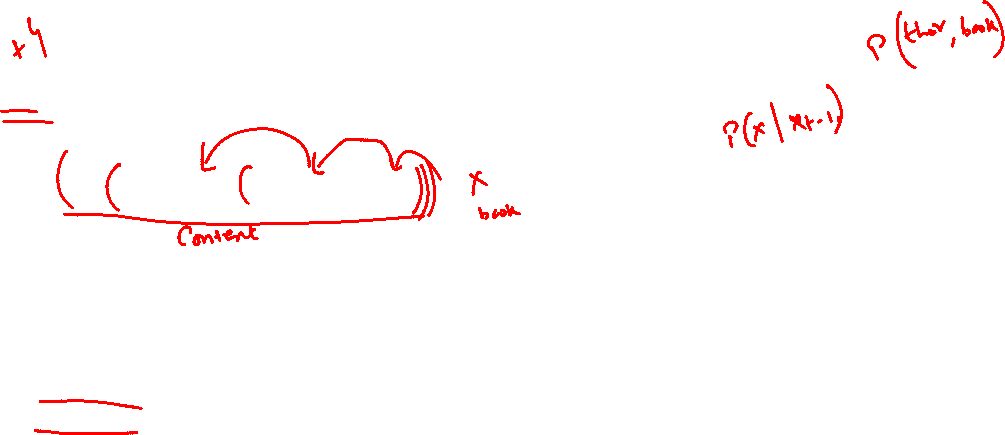 x4
P(thor, book)
P(x | xt-1)
x
book
Content